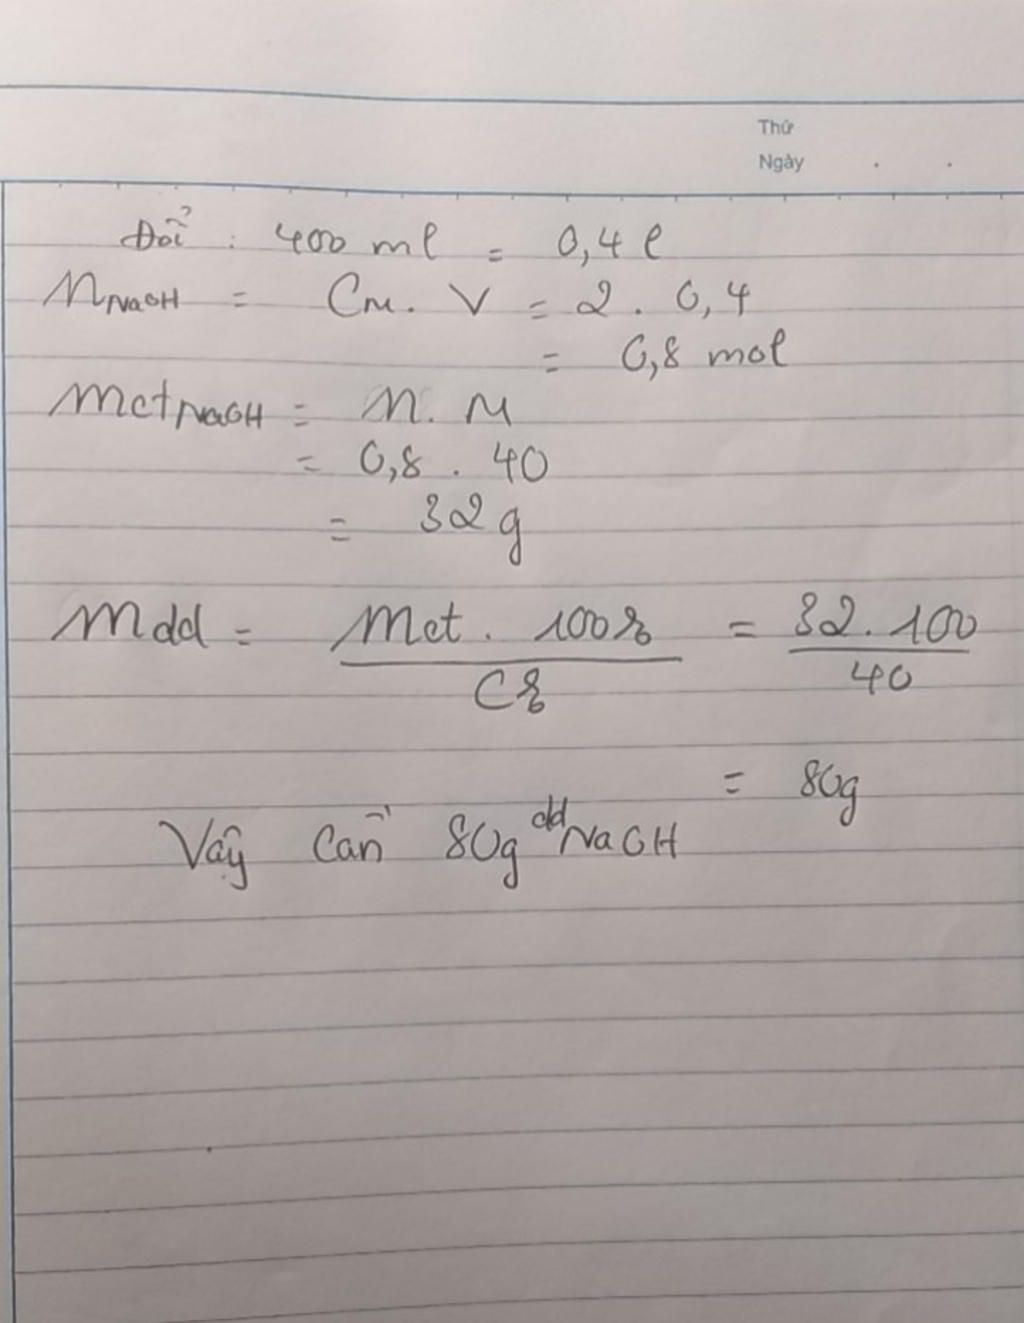 Thứ
Ngày . .
Đổi : 400 ml = 0,4 l
n NaOH = CM . V = 2 . 0,4
= 0,8 mol
mct NaOH = n . M
= 0,8 . 40
= 32 g
mdd = mct . 100% / C% = 32 . 100 / 40
= 80g
Vậy cần 80g dd NaOH